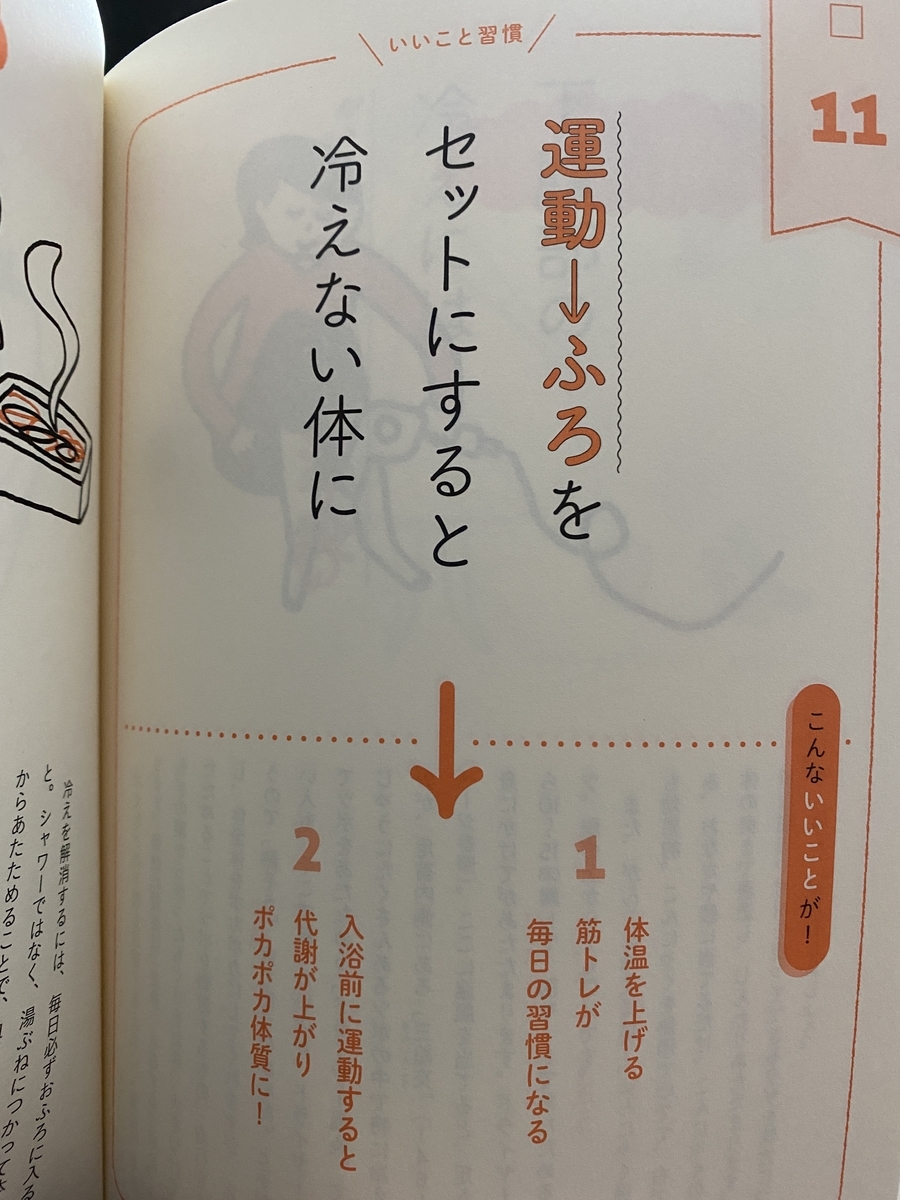 いいこと習慣
11
運動→ふろを
セットにすると
冷えない体に
こんないいことが！
1
体温を上げる
筋トレが
毎日の習慣になる
2
入浴前に運動すると
代謝が上がり
ポカポカ体質に！
冷えを解消するには、毎日必ずおふろに入る
と。シャワーではなく、湯ぶねにつかって
からあたためることで、